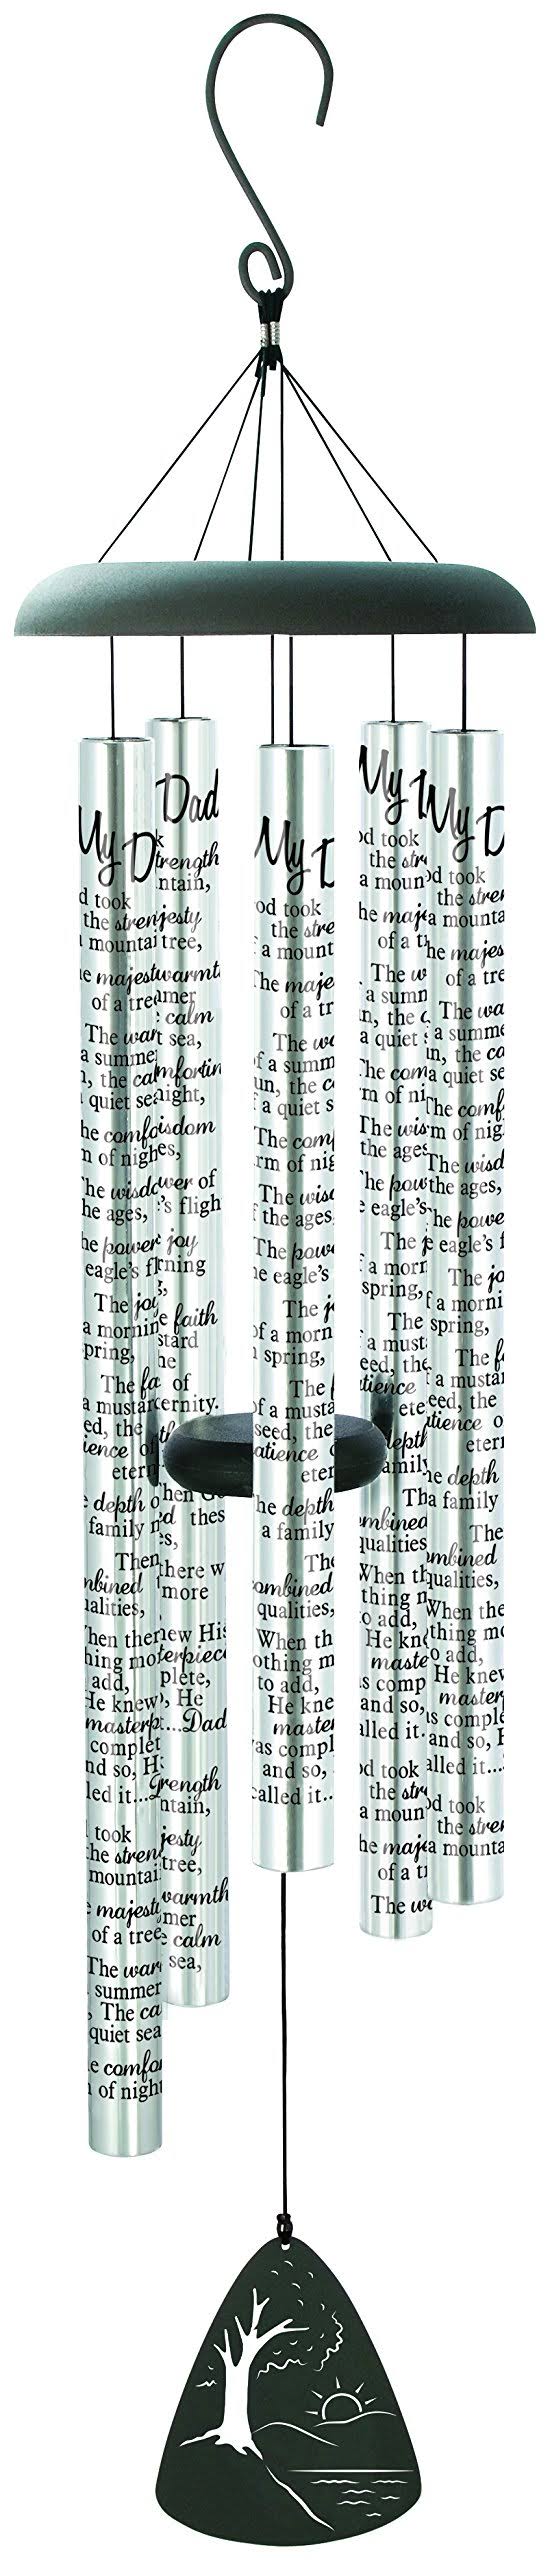 My D
d took
the stren
mountai
e majest
of a tree
The war
a summe
n, the ca
quiet sea
he comfo
m of nigh
he wisdo
he ages,
he power
eagle's fl
The joy
a mornin
pring,
The fa
a mustar
ed, the
ience of
etern
e depth o
family n
Then
mbined
ualities,
hen ther
hing mo
add,
He knew
masterp
complet
and so, H
led it...
took
the stren
mountai
e majesty
of a tree
The war
summer
, The ca
quiet sea
e comfor
of night
Dad
trength
ntain,
jesty
tree,
warmt
mer
calm
t sea,
mfortin
night,
isdom
es,
wer of
's fligh
joy
rning
g,
e faith
stard
he
of
ernity.
th
hen G
d thes
es,
here w
more
new His
terpiece
plete,
, He
...Dad
rength
ntain,
jesty
tree,
warmth
mer
e calm
sea,
My D
od took
the stre
a mount
The maje
of a tr
The wa
of a summ
un, the c
f a quiet s
The com
rm of nig
The wisd
f the ages
The powe
he eagle's
The j
of a morn
n spring,
The f
of a musta
seed, the
atience o
eter
he depth
a family
The
ombined
qualities,
When th
othing m
to add,
He kne
master
as compl
and so,
called it...
My D
od took
the str
a moun
he maj
of a t
The w
a sumn
n, the c
a quiet s
The com
rm of ni
The wis
the ages
he pow
e eagle's
The j
f a morn
spring,
The
f a must
eed, the
atience
ete
depth
amily
Th
mbined
qualities
When th
thing n
to add,
He kn
maste
s comp
and so,
alled it.
od took
the str
a moun
he maj
of a t
The wa
My D
od took
the stren
a mounta
he majes
of a tre
The wa
a summe
un, the ca
a quiet se
The comf
m of nig
The wisd
the ages,
he powe
e eagle's f
The jo
f a morni
spring,
The f
f a mustar
eed, the
atience o
etern
he depth
a family
The
ombined
qualities,
When the
thing mo
to add,
He knew
master
as comple
and so, H
alled it...
od took
the stren
a mounta